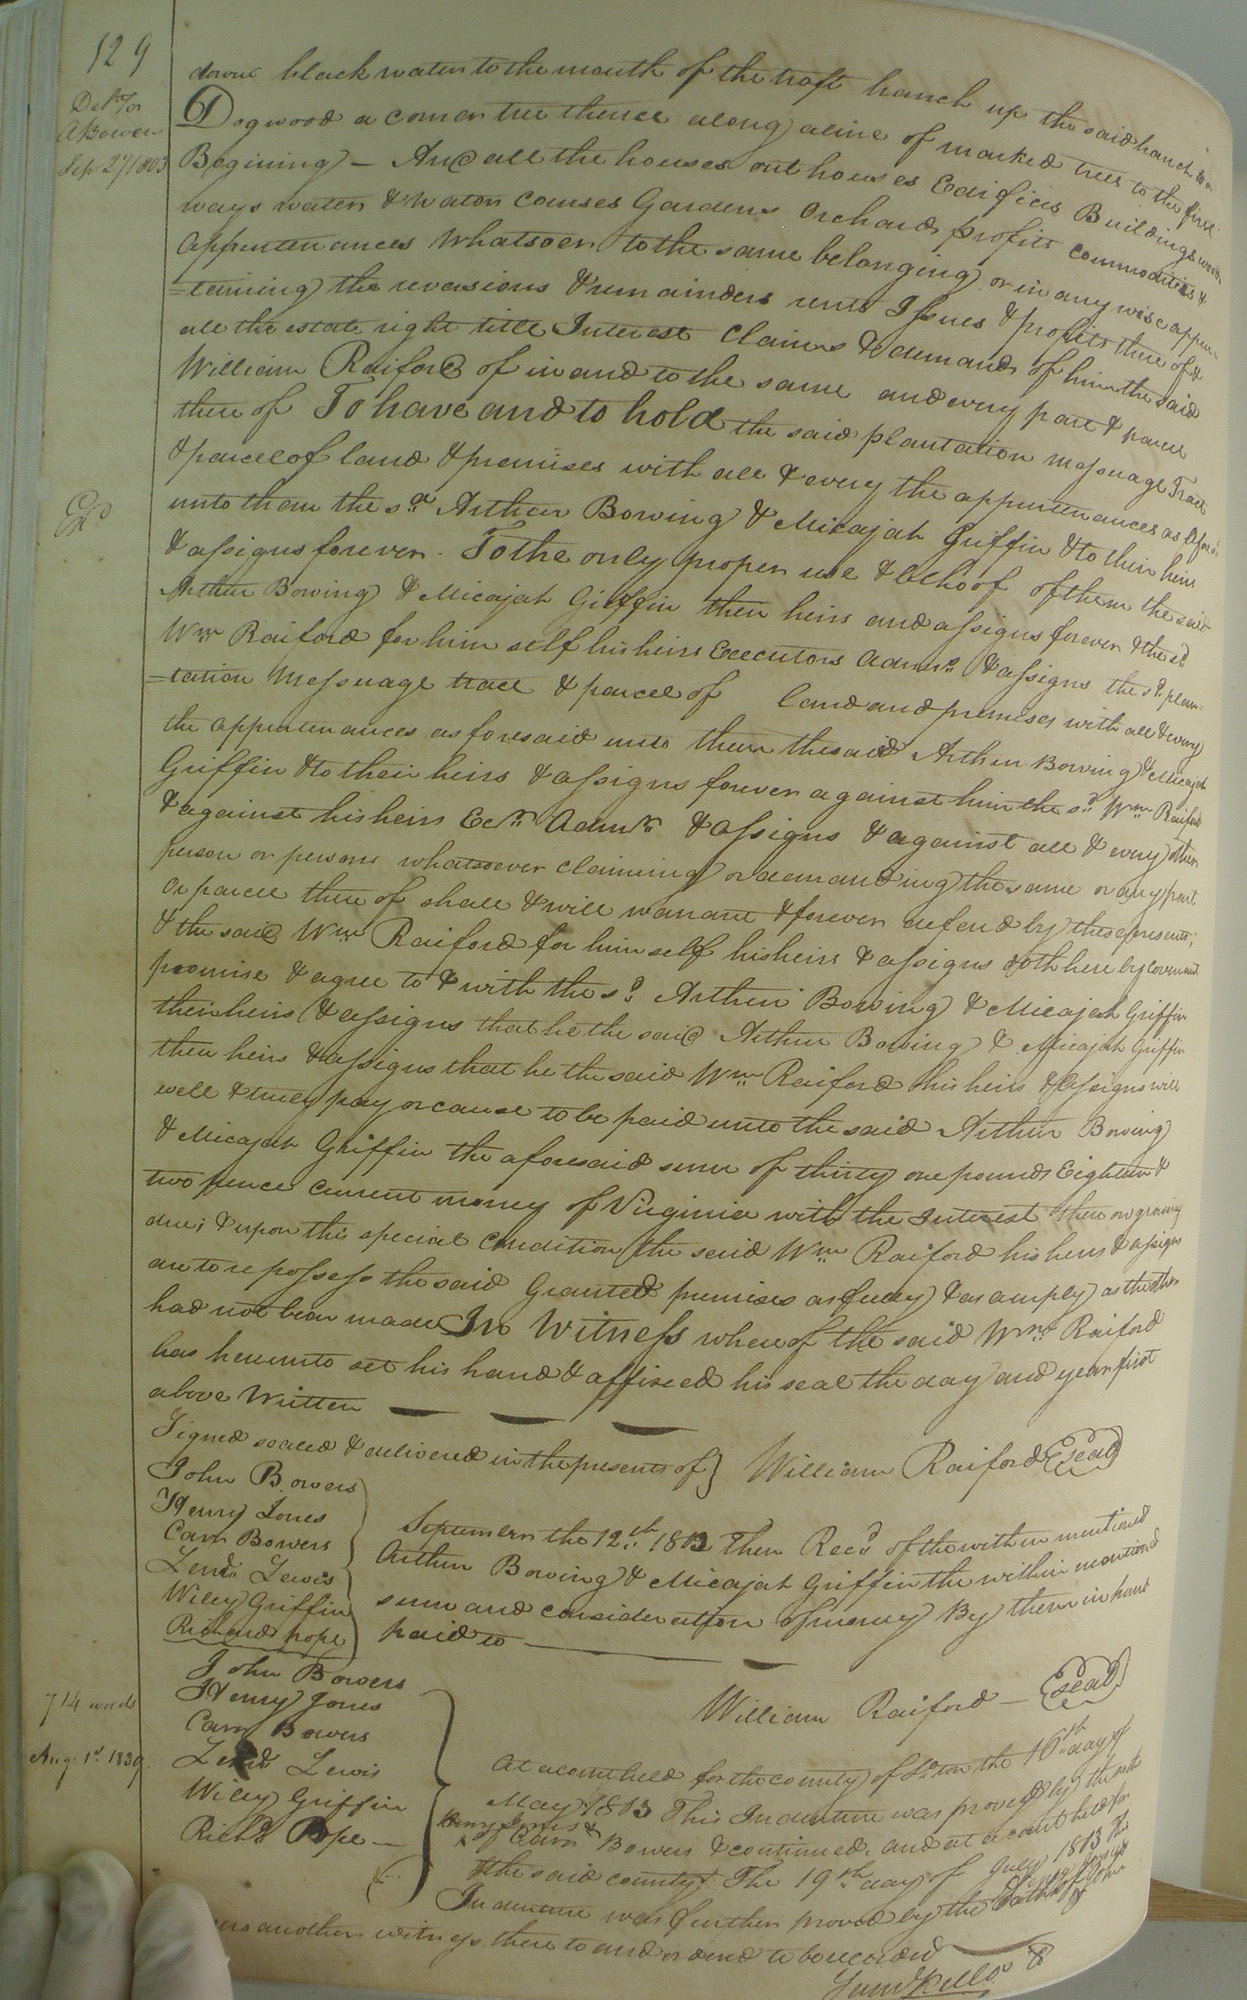 129
Del'd to
A Bowen
Sep 27 1803
down black water to the mouth of the troft branch up the said branch to a
Dogwood a corner tree thence along a line of marked trees to the first
Begining — And all the houses out houses Edifices Buildings woods
ways waters & water Courses Gardens Orchards profits commodities &
appurtenances whatsoever to the same belonging or in any wise apper=
=taining the revesions & remainders rents Issues & profits there of &
all the estate right title Interest Claims & demands of him the said
William Raiford of in and to the same and every part & parcel
there of To have and to hold the said plantation messuage Tract
& parcel of land & premises with all & every the appurtenances as afores'd
unto them the s.d Arthur Bowing & Micajah Griffin & to their heirs
Ex'd
& assigns forever. To the only proper use & behoof of them the said
Arthur Bowing & Micajah Griffin their heirs and assigns forever & the s.d
W.m Raiford for him self his heirs Executors Adm.rs & assigns the s.d plan=
=tation Messuage tract & parcel of land and premises with all & every
the appurtenances as foresaid unto them the said Arthur Bowing & Micajah
Griffin & to their heirs & assigns forever against him the s.d W.m Raiford
& against his heirs Ec.rs Adm.rs & assigns & against all & every other
person or persons whatsoever claiming or demanding the same or any part
or parcel there of shall & will warrant & forever defend by these presents;
& the said W.m Raiford for him self his heirs & assigns doth here by covenant
promise & agree to & with the s.d Arthur Bowing & Micajah Griffin
their heirs & assigns that he the said Arthur Bowing & Micajah Griffin
their heirs & assigns that he the said W.m Raiford his heirs & assigns will
well & truly pay or cause to be paid unto the said Arthur Bowing
& Micajah Griffin the aforesaid sum of thirty one pounds Eighteen &
two pence current money of Virginia with the Interest there on growing
due; & upon this special condition the said W.m Raiford his heirs & assigns
are to re possess the said Granted premises as fully & as amply as tho this
had not been made In Witness where of the said W.m Raiford
has hereunto set his hand & affixed his seal the day and year first
above Written
Signed sealed & delivered in the presents of} William Raiford (seal)
John Bowers
Henry Jones
Carr Bowers
Zend.r Lewis
Wiley Griffin
Richard pope
September the 12.th 1803 Then Rec.d of the with in mentioned
Arthur Bowing & Micajah Griffin the within mentioned
sum and consideration of money By them in hand
paid to
William Raiford — (seal)
John Bowers
Henry Jones
Carr Bowers
Lewis
Wiley Griffin
Rich.d Pope —
714 words
Aug. 1.st 1839.
At a court held for the county of S.ton the 16.th day of
May 1803 This Indenture was proved by the oaths
Henry Jones &
of Carr Bowers & continued, and at a court held for
the said county The 19.th day of July 1803 this
Indenture was further proved by the Oath of John
another witness there to and ordered to be recorded
Sam.l Kello